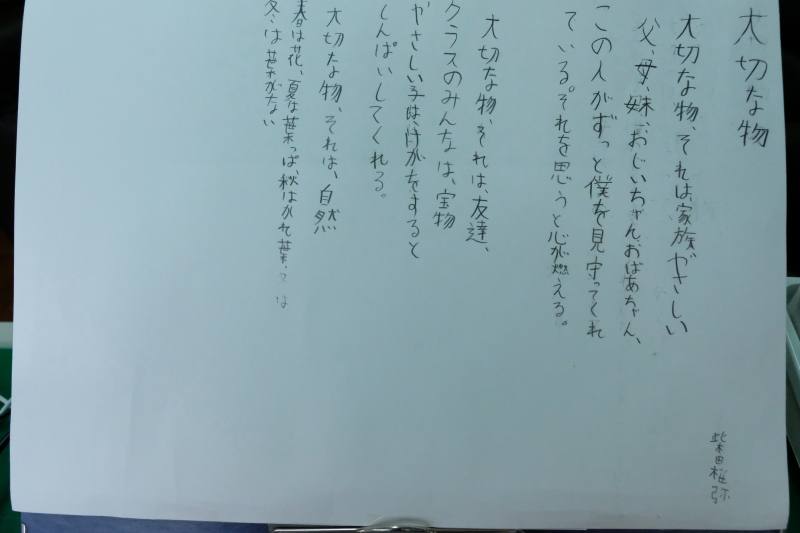 大切な物
柴田雅弥
大切な物、それは、家族やさしい
父、母、妹、おじいちゃん、おばあちゃん、
この人がずっと僕を見守ってくれ
ている。それを思うと心が燃える。
大切な物、それは、友達、
クラスのみんなは、宝物
やさしい子は、けがをすると
しんぱいしてくれる。
大切な物、それは、自然
春は花、夏は葉っぱ、秋はかれ葉、冬は
冬は葉がない